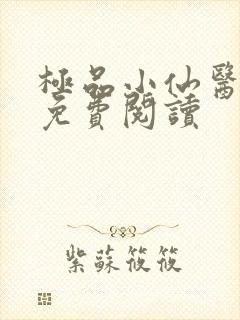 極品小仙醫
免費閱讀
紫蘇筱筱